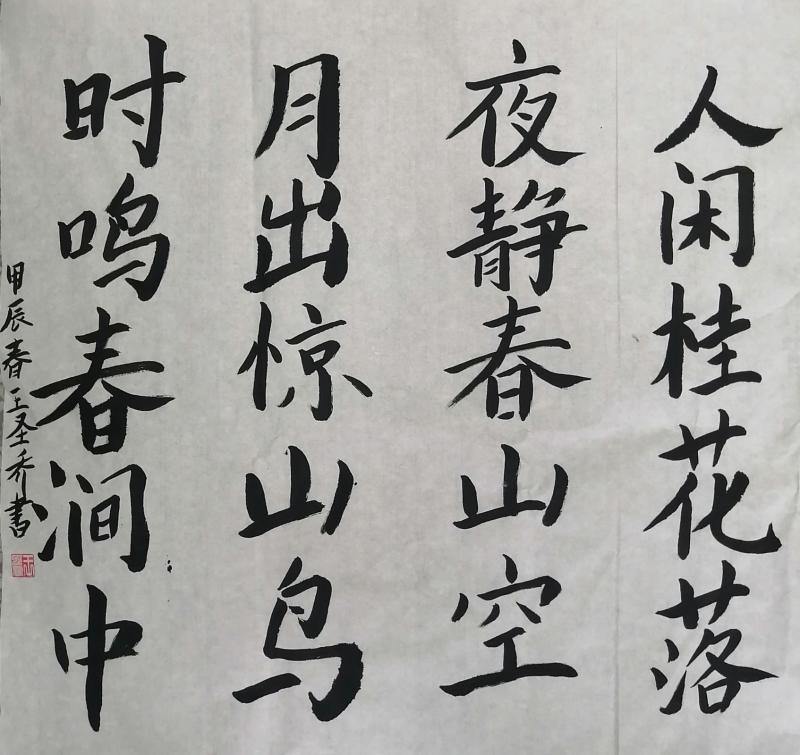 人闲桂花落
夜静春山空
月出惊山鸟
时鸣春涧中
甲辰春王圣乔书